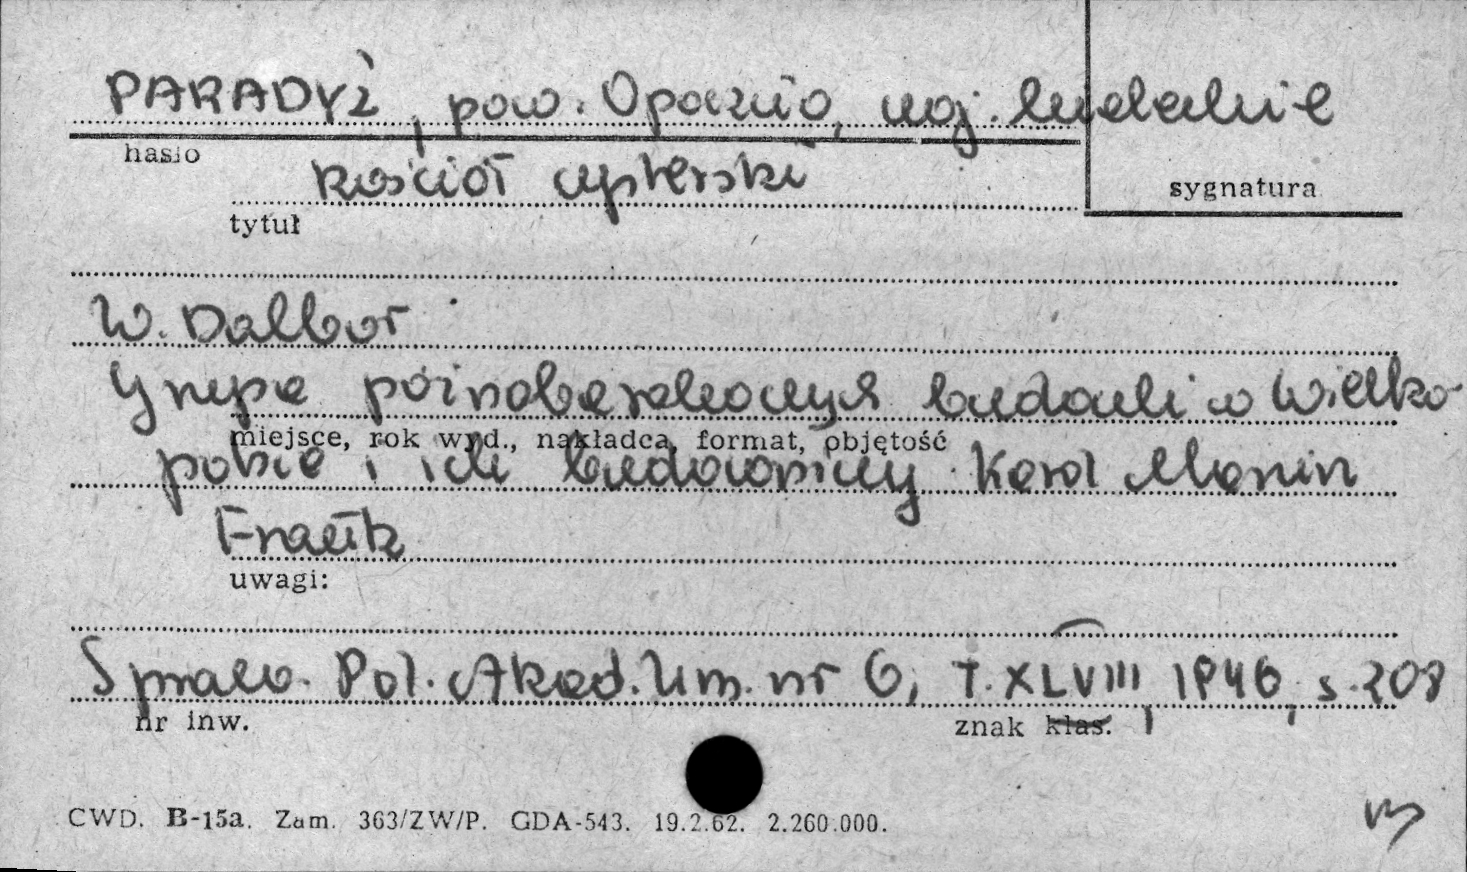 PARADYŻ, pow. Opoczno, woj. kieleckie
hasło
kościół cysterski
sygnatura
tytuł
W. Dalbor
Grupa późnobarokowych budowli w Wielko-
miejsce, rok wyd., nakładca, format, objętość
polsce i ich budowniczy Karol Marcin
Frantz
uwagi:
Spraw. Pol. Akad. Um. nr 6, T. XLVIII, 1946, s. 208
nr inw.
znak klas.
CWD. B-15a. Zam. 363/ZW/P. GDA-543. 19.2.62. 2.260.000.